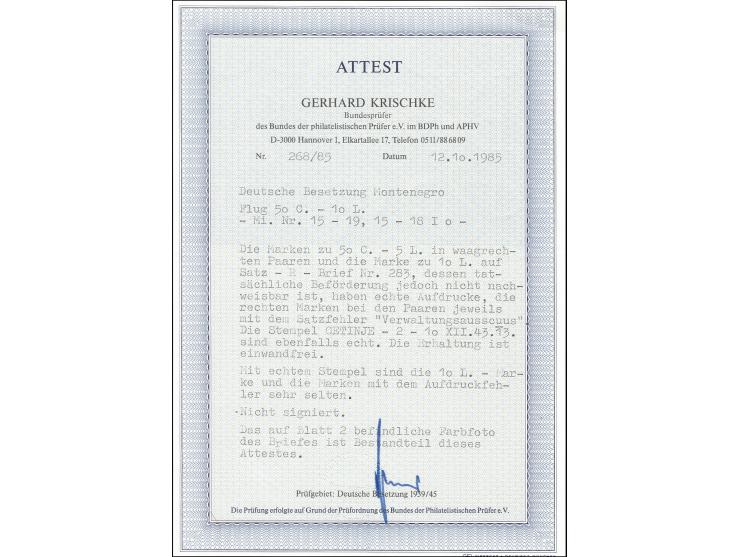 ATTEST
GERHARD KRISCHKE
Bundesprüfer
des Bundes der philatelistischen Prüfer e.V. im BDPh und APHV
D-3000 Hannover 1, Elkartallee 17, Telefon 0511/886809
Nr. 268/85 Datum 12.10.1985
Deutsche Besetzung Montenegro
Flug 50 C. - 10 L.
- Mi. Nr. 15 - 19, 15 - 18 I o -
Die Marken zu 50 C. - 5 L. in waagrech-
ten Paaren und die Marke zu 10 L. auf
Satz - R - Brief Nr. 283, dessen tat-
sächliche Beförderung jedoch nicht nach-
weisbar ist, haben echte Aufdrucke, die
rechten Marken bei den Paaren jeweils
mit dem Satzfehler "Verwaltungsausscuus".
Die Stempel CETINJE - 2 - 10 XII.43.13.
sind ebenfalls echt. Die Erhaltung ist
einwandfrei.
Mit echtem Stempel sind die 10 L. - Mar-
ke und die Marken mit dem Aufdruckfeh-
ler sehr selten.
Nicht signiert.
Das auf Blatt 2 befindliche Farbfoto
des Briefes ist Bestandteil dieses
Attestes.
Prüfgebiet: Deutsche Besetzung 1939/45
Die Prüfung erfolgte auf Grund der Prüfordnung des Bundes der Philatelistischen Prüfer e.V.